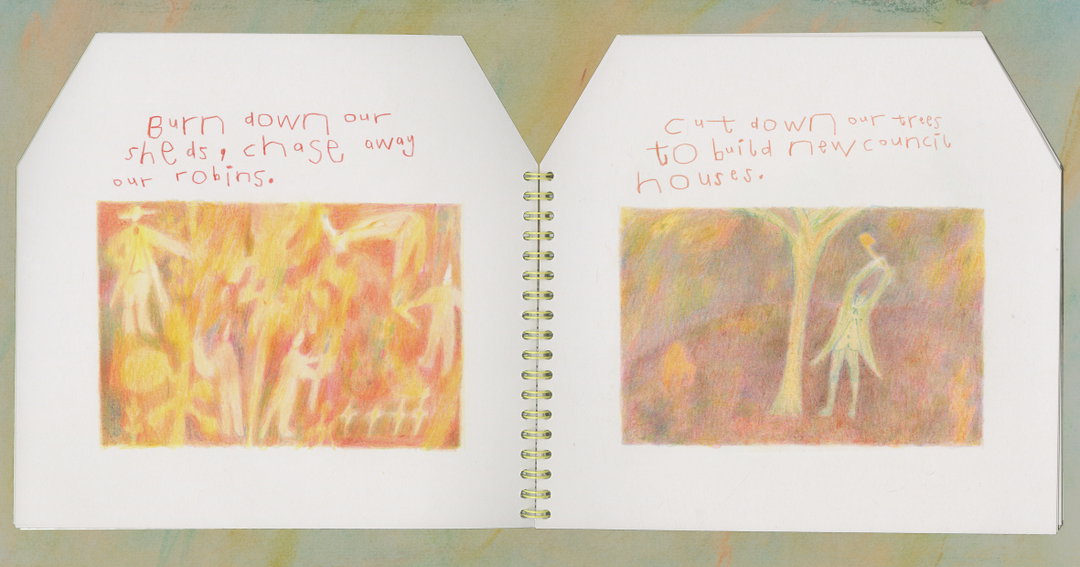 Burn down our
sheds, chase away
our robins.
cut down our trees
to build new council
houses.